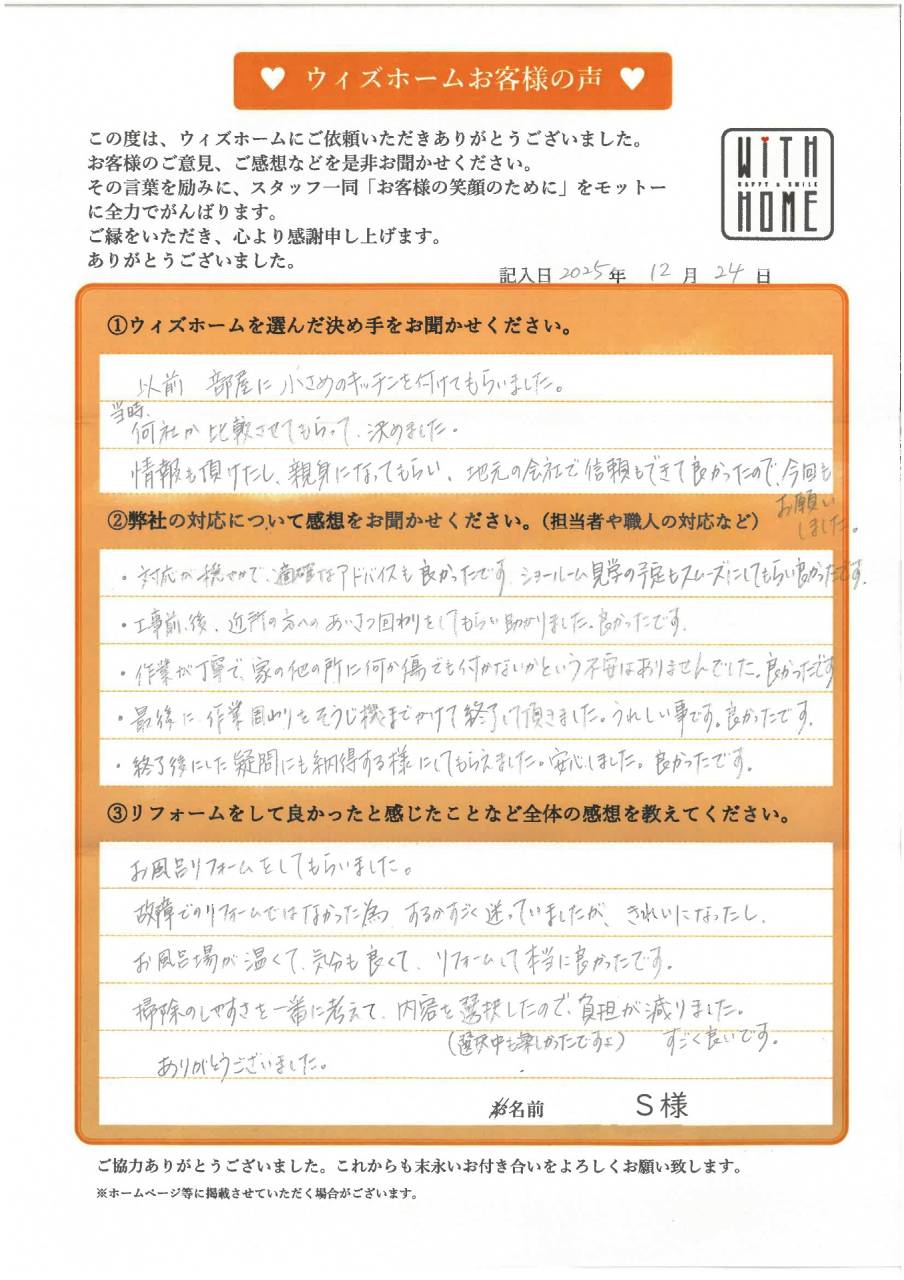 ♥ ウィズホームお客様の声 ♥
この度は、ウィズホームにご依頼いただきありがとうございました。
お客様のご意見、ご感想などを是非お聞かせください。
その言葉を励みに、スタッフ一同「お客様の笑顔のために」をモットー
に全力でがんばります。
ご縁をいただき、心より感謝申し上げます。
ありがとうございました。
WiTH
HAPPY & SMILE
HOME
記入日 2025年 12月 24日
①ウィズホームを選んだ決め手をお聞かせください。
以前 部屋に小さめのキッチンを付けてもらいました。
当時、
何社か比較させてもらって、決めました。
情報も頂けたし、親身になってもらい、地元の会社で信頼もできて良かったので、今回も
お願い
しました。
②弊社の対応について感想をお聞かせください。（担当者や職人の対応など）
・対応が穏やかで、適確なアドバイスも良かったです。ショールーム見学の予定もスムーズにしてもらい良かったです。
・工事前、後、近所の方へのあいさつ回りをしてもらい助かりました。良かったです。
・作業が丁寧で、家の他の所に何か傷でも付かないかという不安はありませんでした。良かったです
・最後に、作業周りをそうじ機までかけて終了して頂きました。うれしい事です。良かったです。
・終了後にした疑問にも納得する様にしてもらえました。安心しました。良かったです。
③リフォームをして良かったと感じたことなど全体の感想を教えてください。
お風呂リフォームをしてもらいました。
故障でのリフォームではなかった為、するかすごく迷っていましたが、きれいになったし、
お風呂場が温くて、気分も良くて、リフォームして本当に良かったです。
掃除のしやすさを一番に考えて、内容を選択したので、負担が減りました。
(選択中も楽しかったですよ) すごく良いです。
ありがとうございました。
お名前 S様
ご協力ありがとうございました。これからも末永いお付き合いをよろしくお願い致します。
※ホームページ等に掲載させていただく場合がございます。